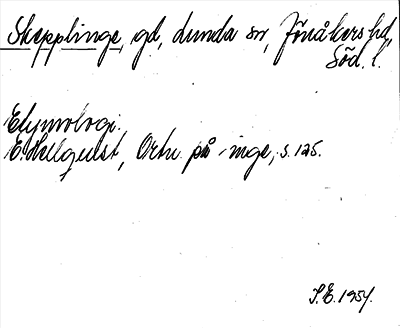 Skepplinge, gd, Lunda sn, Jönåkers hd,
Söd. l.
Etymologi.
E. Hellquist, Ortn. på -inge, s. 125.
S.E. 1954.